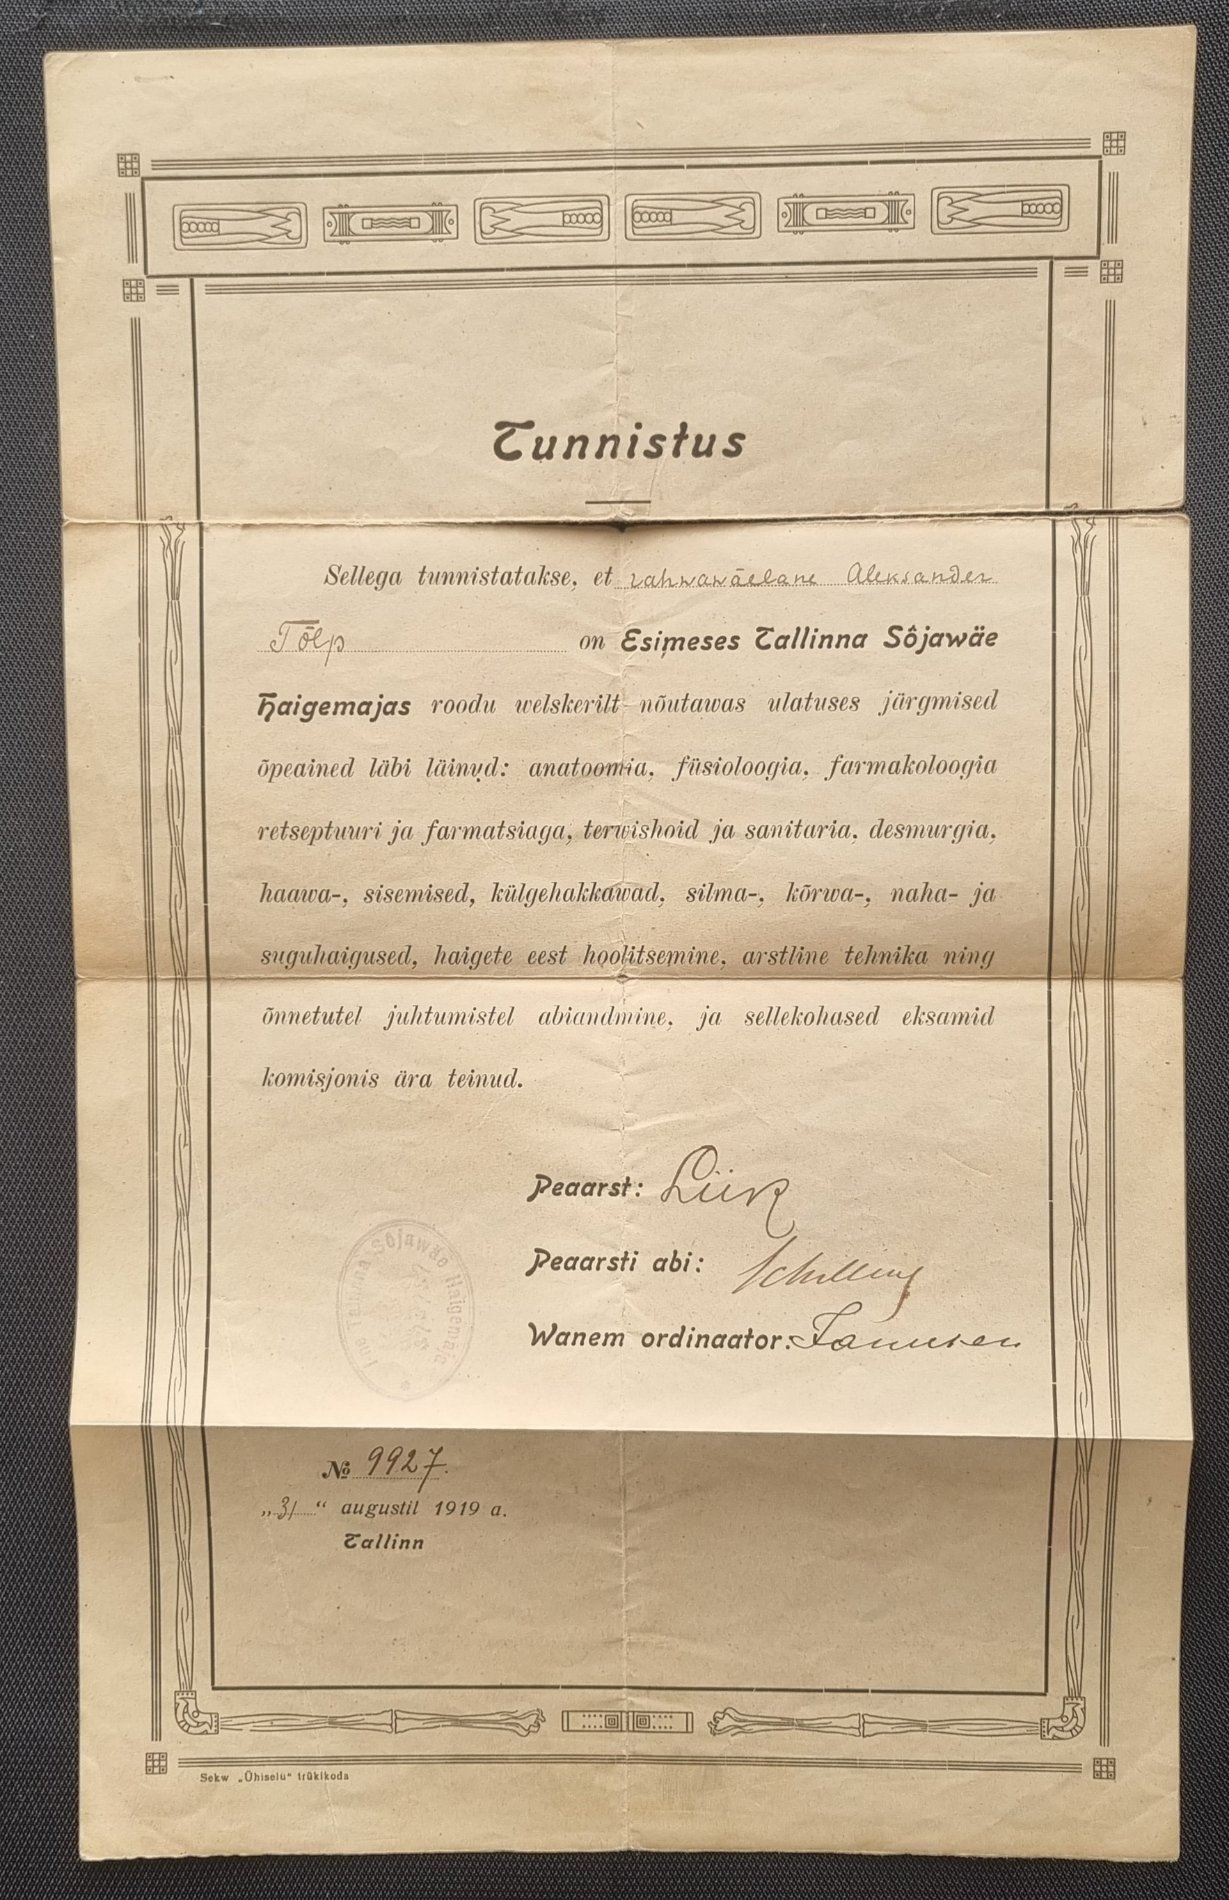 Tunnistus
Sellega tunnistatakse, et rahwawäelane Aleksander
Tölp on Esimeses Tallinna Sôjawäe
Haigemajas roodu welskerilt nõutawas ulatuses järgmised
õpeained läbi läinud: anatoomia, füsioloogia, farmakoloogia
retseptuuri ja farmatsiaga, terwishoid ja sanitaria, desmurgia,
haawa-, sisemised, külgehakkawad, silma-, kõrwa-, naha- ja
suguhaigused, haigete eest hoolitsemine, arstline tehnika ning
õnnetutel juhtumistel abiandmine, ja sellekohased eksamid
komisjonis ära teinud.
Peaarst: Liik
Peaarsti abi: Schilling
Wanem ordinaator:
Tallinna Sôjawäe Haigemaja
№ 9927.
„31“ augustil 1919 a.
Tallinn
Sekw „Ühiselu“ trükikoda